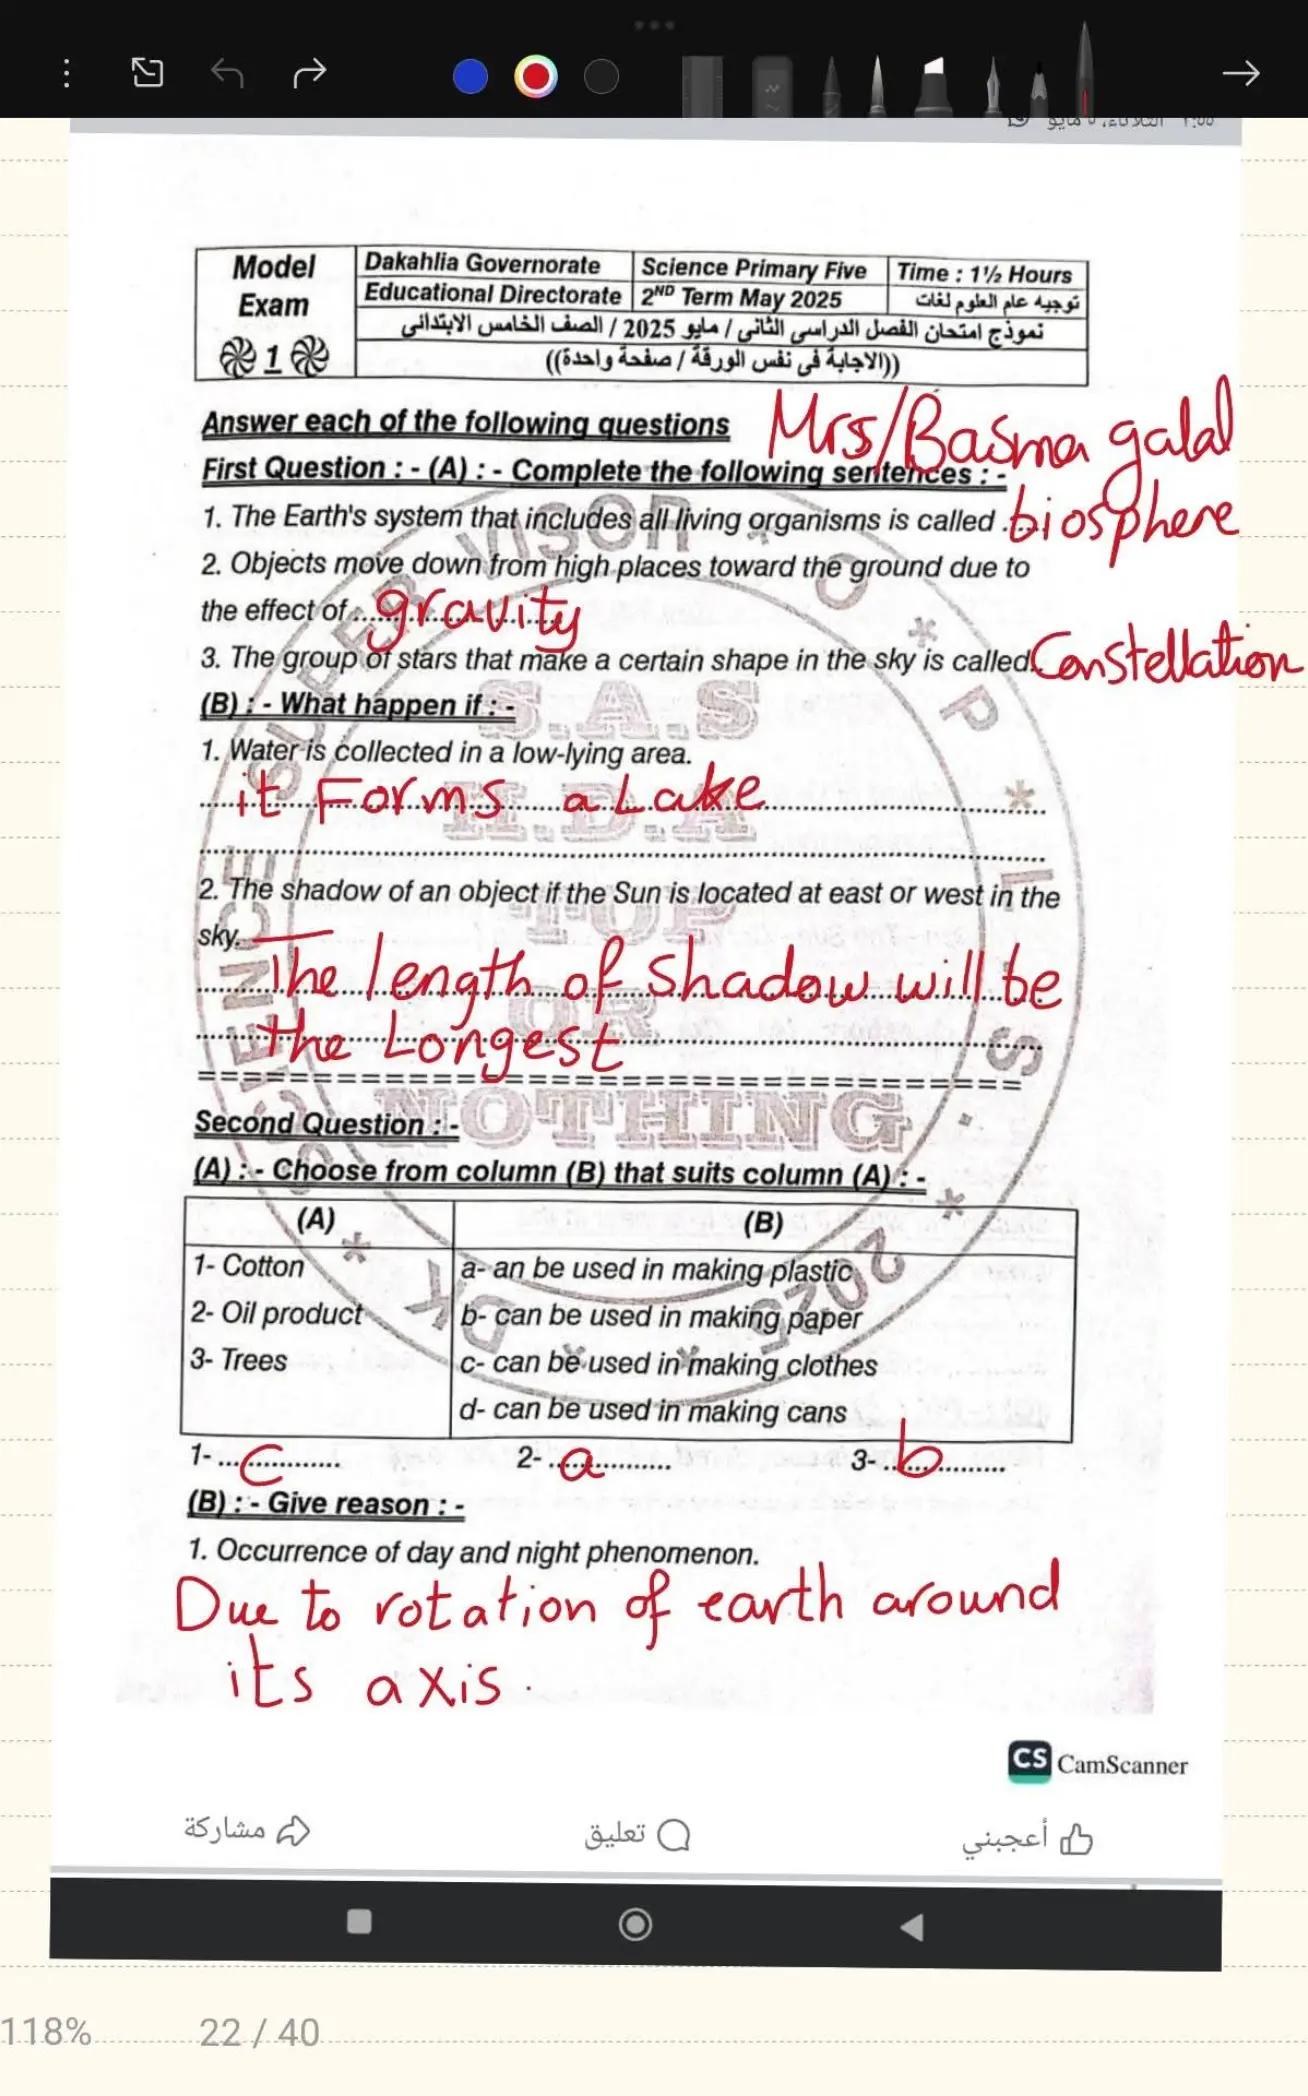 Model Exam 1
Dakahlia Governorate
Science Primary Five
Time : 1½ Hours
Educational Directorate
2ND Term May 2025
توجيه عام العلوم لغات
نموذج امتحان الفصل الدراسي الثانى / مايو 2025 / الصف الخامس الابتدائى
((الاجابة فى نفس الورقة / صفحة واحدة))
Mrs/Basma galal
Answer each of the following questions
First Question : - (A) : - Complete the following sentences : -
1. The Earth's system that includes all living organisms is called ..... biosphere
2. Objects move down from high places toward the ground due to
the effect of ..... gravity
3. The group of stars that make a certain shape in the sky is called. Constellation
(B) : - What happen if : -
1. Water is collected in a low-lying area.
it Forms a Lake
2. The shadow of an object if the Sun is located at east or west in the
sky.
The length of shadow will be
the Longest
Second Question : -
(A) : - Choose from column (B) that suits column (A) : -
(A) (B)
1- Cotton a- an be used in making plastic
2- Oil product b- can be used in making paper
3- Trees c- can be used in making clothes
d- can be used in making cans
1- c 2- a 3- b
(B) : - Give reason : -
1. Occurrence of day and night phenomenon.
Due to rotation of earth around
its axis.
SCIENCE SUPER VISOR * O * P * I * S . * 2025 * DK *
S.A.S
H.D.A
TOP
OR
NOTHING
CS CamScanner
أعجبني
تعليق
مشاركة
118% 22 / 40